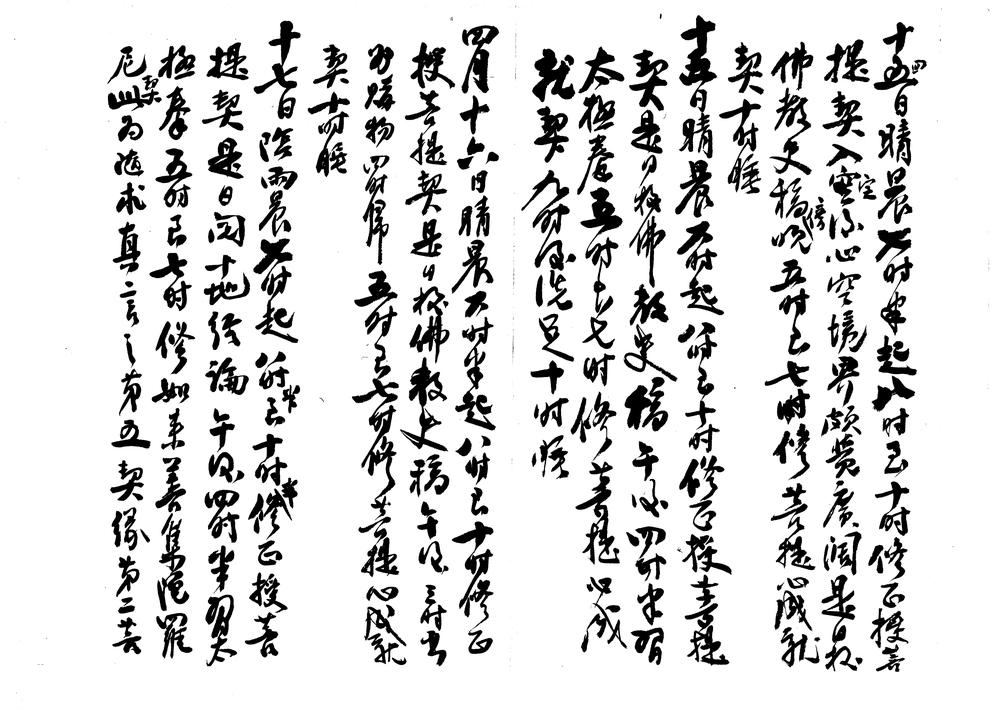 十四日晴晨六时半起八时至十时修正授菩
提契入空定後心空境界頗覺廣闊是日校
佛教史稿傍晚五时至七时修菩提心成就
契十时睡
十五日晴晨六时起八时至十时修正授菩提
契是日校佛教史稿午後四时半習
太極拳五时至七时修菩提心成
就契九时後洗足十时睡
四月十六日晴晨六时半起八时至十时修正
授菩提契是日校佛教史稿午後三时出
外購物四时歸五时至七时修菩提心成就
契十时睡
十七日陰雨晨六时起八时半至十时半修正授菩
提契是日閱十地經論午後四时半習太
極拳五时至七时修如来善集陀羅
尼契此为隨求真言之第五契緣第二菩